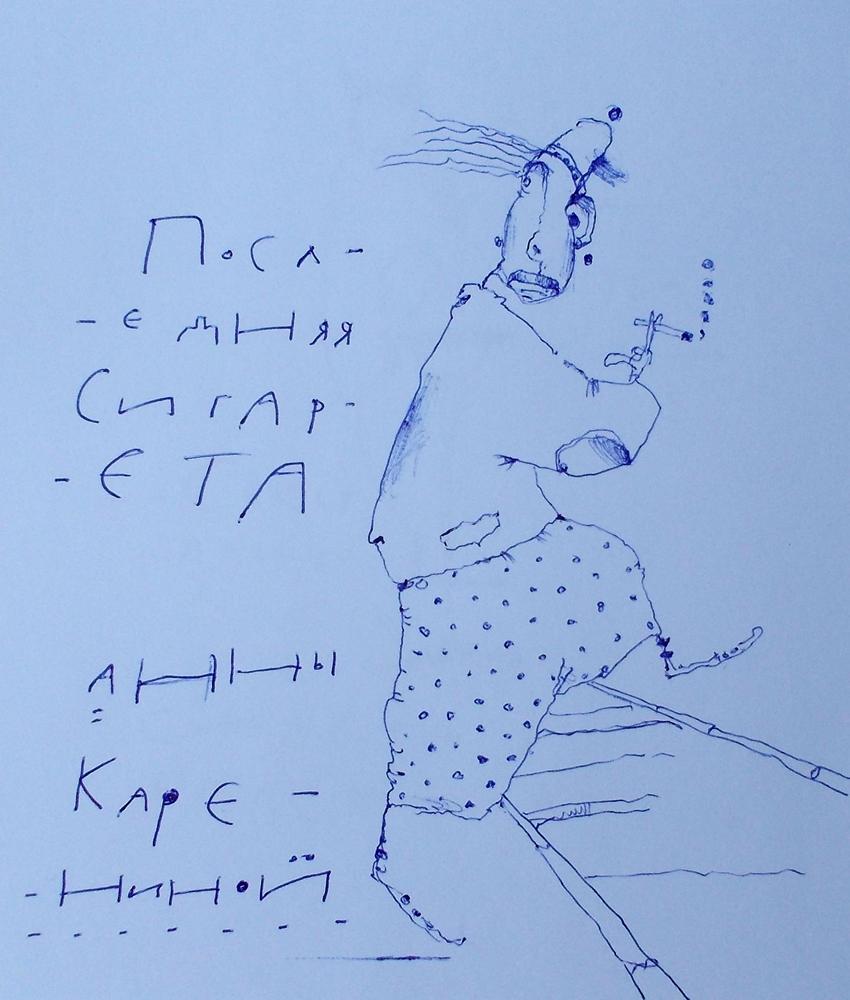 Посл-
-едняя
Сигар-
-ЕТА
Анны
Каре-
-ниной